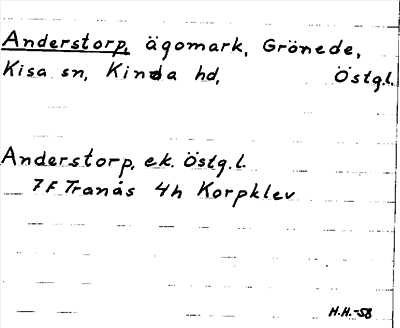 Anderstorp, ägomark, Grönede,
Kisa sn, Kinda hd, Östg.l.
Anderstorp, ek. Östg.l.
7F Tranås 4h Korpklev
H.H.-58